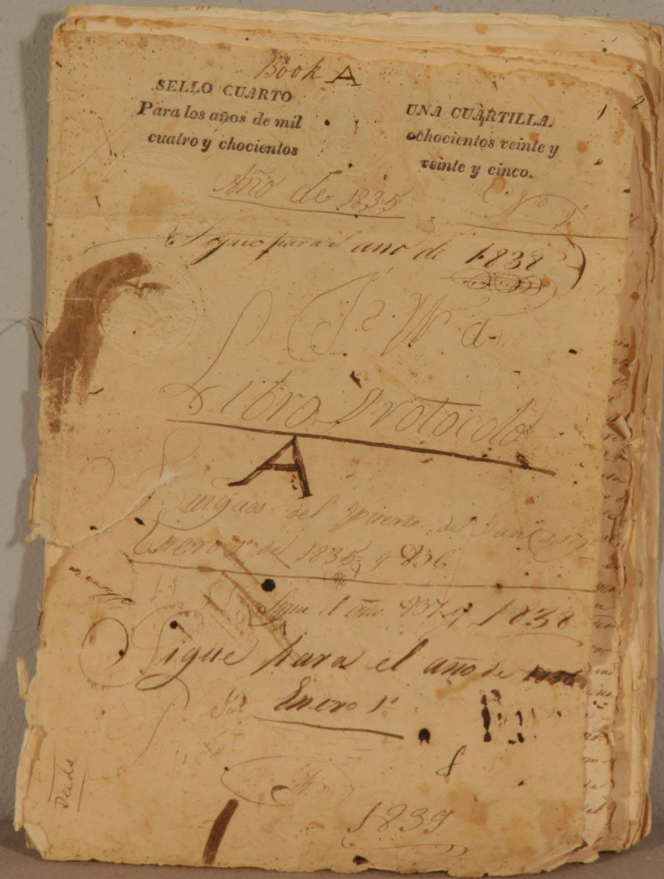 Book A
SELLO CUARTO
Para los años de mil
cuatro y chocientos
UNA CUARTILLA.
ochocientos veinte y
veinte y cinco.
1 2
Año de 1835
Nº 1
Sigue para el año de 1838
Libro Protocolo
A
del Puerto de San
Enero 1º de 1835 y 836
Sigue el año 837 y 1838
Sigue para el año de
Enero 1º
8
Deeds
1839